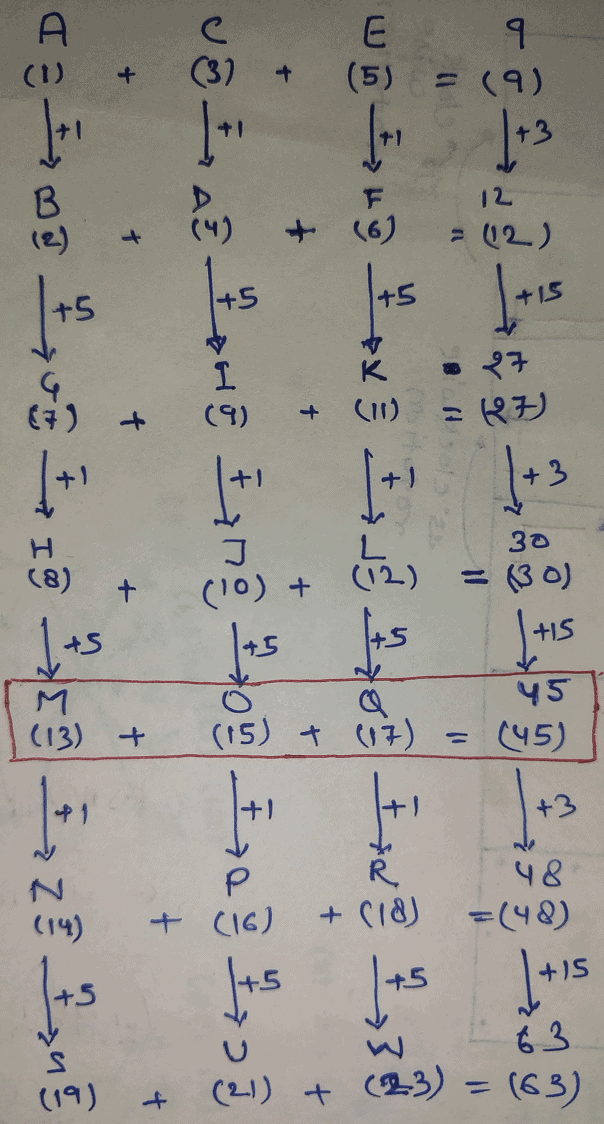 A C E 9
(1) + (3) + (5) = (9)
+1 +1 +1 +3
B D F 12
(2) + (4) + (6) = (12)
+5 +5 +5 +15
G I K 27
(7) + (9) + (11) = (27)
+1 +1 +1 +3
H J L 30
(8) + (10) + (12) = (30)
+5 +5 +5 +15
M O Q 45
(13) + (15) + (17) = (45)
+1 +1 +1 +3
N P R 48
(14) + (16) + (18) = (48)
+5 +5 +5 +15
S U W 63
(19) + (21) + (23) = (63)